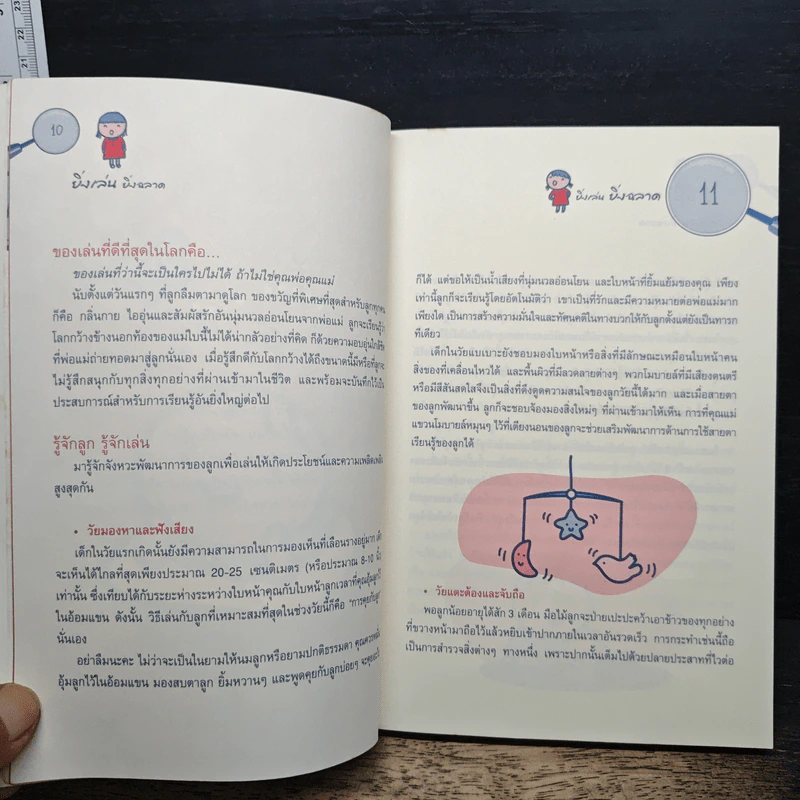 23
22
21
10
ยิ่งเล่น ยิ่งฉลาด
ของเล่นที่ดีที่สุดในโลกคือ...
ของเล่นที่ว่านี้จะเป็นใครไปไม่ได้ ถ้าไม่ใช่คุณพ่อคุณแม่
นับตั้งแต่วันแรกๆ ที่ลูกลืมตามาดูโลก ของขวัญที่พิเศษที่สุดสำหรับลูกทุกคน
ก็คือ กลิ่นกาย ไออุ่นและสัมผัสรักอันนุ่มนวลอ่อนโยนจากพ่อแม่ ลูกจะเรียนรู้ว่า
โลกกว้างข้างนอกท้องของแม่ใบนี้ไม่ได้น่ากลัวอย่างที่คิด ก็ด้วยความอบอุ่นใกล้ชิด
ที่พ่อแม่ถ่ายทอดมาสู่ลูกนั่นเอง เมื่อรู้สึกดีกับโลกกว้างได้ถึงขนาดนี้มีหรือที่ลูกจะ
ไม่รู้สึกสนุกกับทุกสิ่งทุกอย่างที่ผ่านเข้ามาในชีวิต และพร้อมจะบันทึกไว้เป็น
ประสบการณ์สำหรับการเรียนรู้อันยิ่งใหญ่ต่อไป
รู้จักลูก รู้จักเล่น
มารู้จักจังหวะพัฒนาการของลูกเพื่อเล่นให้เกิดประโยชน์และความเพลิดเพลิน
สูงสุดกัน
• วัยมองหาและฟังเสียง
เด็กในวัยแรกเกิดนั้นยังมีความสามารถในการมองเห็นที่เลือนรางอยู่มาก
จะเห็นได้ไกลที่สุดเพียงประมาณ 20-25 เซนติเมตร (หรือประมาณ 8-10 นิ้ว)
เท่านั้น ซึ่งเทียบได้กับระยะห่างระหว่างใบหน้าคุณกับใบหน้าลูกเวลาที่คุณอุ้มลูกไว้
ในอ้อมแขน ดังนั้น วิธีเล่นกับลูกที่เหมาะสมที่สุดในช่วงวัยนี้ก็คือ "การคุยกับลูก"
นั่นเอง
อย่าลืมนะคะ ไม่ว่าจะเป็นในยามให้นมลูกหรือยามปกติธรรมดา
อุ้มลูกไว้ในอ้อมแขน มองสบตาลูก ยิ้มหวานๆ และพูดคุยกับลูกบ่อยๆ
ยิ่งเล่น ยิ่งฉลาด
11
ก็ได้ แต่ขอให้เป็นน้ำเสียงที่นุ่มนวลอ่อนโยน และใบหน้าที่ยิ้มแย้มของคุณ เพียง
เท่านี้ลูกก็จะเรียนรู้โดยอัตโนมัติว่า เขาเป็นที่รักและมีความหมายต่อพ่อแม่มาก
เพียงใด เป็นการสร้างความมั่นใจและทัศนคติในทางบวกให้กับลูกตั้งแต่ยังเป็นทารก
ทีเดียว
เด็กในวัยแบเบาะยังชอบมองใบหน้าหรือสิ่งที่มีลักษณะเหมือนใบหน้าคน
สิ่งของที่เคลื่อนไหวได้ และพื้นผิวที่มีลวดลายต่างๆ พวกโมบายล์ที่มีเสียงดนตรี
หรือมีสีสันสดใสจึงเป็นสิ่งที่ดึงดูดความสนใจของลูกวัยนี้ได้มาก และเมื่อสายตา
ของลูกพัฒนาขึ้น ลูกก็จะชอบจ้องมองสิ่งใหม่ๆ ที่ผ่านเข้ามาให้เห็น การที่คุณแม่
แขวนโมบายล์หมุนๆ ไว้ที่เตียงนอนของลูกจะช่วยเสริมพัฒนาการด้านการใช้สายตา
เรียนรู้ของลูกได้
• วัยแตะต้องและจับถือ
พอลูกน้อยอายุได้สัก 3 เดือน มือไม้ลูกจะป่ายเปะปะคว้าเอาข้าวของทุกอย่าง
ที่ขวางหน้ามาถือไว้แล้วหยิบเข้าปากภายในเวลาอันรวดเร็ว การกระทำเช่นนี้ถือ
เป็นการสำรวจสิ่งต่างๆ ทางหนึ่ง เพราะปากนั้นเต็มไปด้วยปลายประสาทที่ไวต่อ